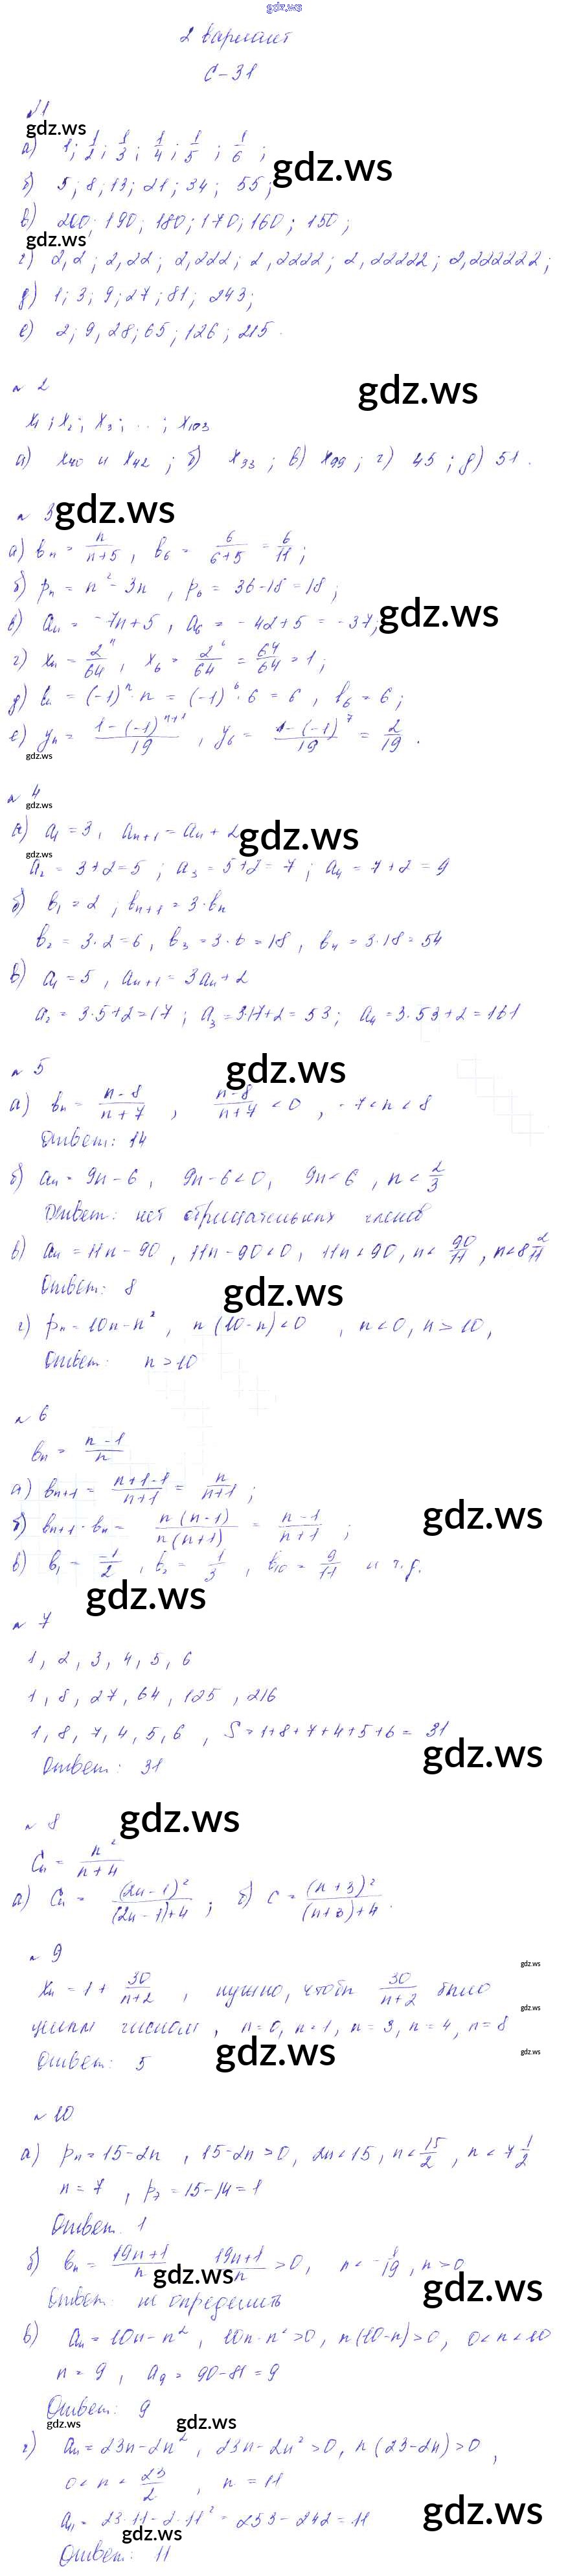 gdz.ws
2 вариант
С-31
№1
gdz.ws
а) 1; 1/2; 1/3; 1/4; 1/5; 1/6;
gdz.ws
б) 5; 8; 13; 21; 34; 55;
в) 200; 190; 180; 170; 160; 150;
gdz.ws
г) 2,2; 2,22; 2,222; 2,2222; 2,22222; 2,222222;
д) 1; 3; 9; 27; 81; 243;
е) 2; 9; 28; 65; 126; 215.
№ 2
gdz.ws
x₁; x₂; x₃; ...; x₁₀₃
а) x₄₀ и x₄₂; б) x₃₃; в) x₉₉; г) 45; д) 51.
№ 3
gdz.ws
а) bₙ = n/(n+5), b₆ = 6/(6+5) = 6/11;
б) pₙ = n² - 3n, p₆ = 36-18 = 18;
gdz.ws
в) aₙ = -7n+5, a₆ = -42+5 = -37;
г) xₙ = 2ⁿ/64, x₆ = 2⁶/64 = 64/64 = 1;
д) bₙ = (-1)ⁿ·n = (-1)⁶·6 = 6, b₆ = 6;
е) yₙ = (1-(-1)ⁿ⁺¹)/19, y₆ = (1-(-1)⁷)/19 = 2/19.
gdz.ws
№ 4
gdz.ws
а) a₁ = 3, aₙ₊₁ = aₙ + 2
gdz.ws
gdz.ws
a₂ = 3+2=5; a₃ = 5+2=7; a₄ = 7+2=9
б) b₁ = 2; bₙ₊₁ = 3·bₙ
b₂ = 3·2=6, b₃ = 3·6=18, b₄ = 3·18=54
в) a₁ = 5, aₙ₊₁ = 3aₙ+2
a₂ = 3·5+2=17; a₃ = 3·17+2=53; a₄ = 3·53+2=161
№ 5
gdz.ws
а) bₙ = (n-8)/(n+7), (n-8)/(n+7) < 0, -7<n<8
Ответ: 14
б) aₙ = 9n-6, 9n-6<0, 9n<6, n<2/3
Ответ: нет отрицательных членов
в) aₙ = 11n-90, 11n-90<0, 11n<90, n<90/11, n<8 2/11
Ответ: 8
gdz.ws
г) pₙ = 10n-n², n(10-n)<0, n<0, n>10,
Ответ: n>10
№ 6
bₙ = (n-1)/n
а) bₙ₊₁ = (n+1-1)/(n+1) = n/(n+1);
gdz.ws
б) bₙ₊₁·bₙ = n(n-1)/(n(n+1)) = (n-1)/(n+1);
в) b₁ = -1/2, b₂ = 1/3, b₁₀ = 9/11 и т.д.
gdz.ws
№ 7
1, 2, 3, 4, 5, 6
1, 8, 27, 64, 125, 216
1, 8, 7, 4, 5, 6, S = 1+8+7+4+5+6 = 31
gdz.ws
Ответ: 31
№ 8
gdz.ws
Cₙ = n²/(n+4)
а) Cₙ = (2n-1)²/((2n-1)+4); б) C = (n+3)²/((n+3)+4).
№ 9
gdz.ws
xₙ = 1 + 30/(n+2), нужно, чтобы 30/(n+2) было
gdz.ws
целым числом, n=0, n=1, n=3, n=4, n=8
gdz.ws
gdz.ws
Ответ: 5
№ 10
а) pₙ = 15-2n, 15-2n>0, 2n<15, n<15/2, n<7 1/2
n = 7, p₇ = 15-14=1
Ответ. 1
б) bₙ = (19n+1)/n (19n+1)/n > 0, n<-1/19, n>0
gdz.ws
gdz.ws
Ответ: не определить
в) aₙ = 10n-n², 10n-n²>0, n(10-n)>0, 0<n<10
n = 9, a₉ = 90-81=9
Ответ: 9
gdz.ws
gdz.ws
г) aₙ = 23n-2n², 23n-2n²>0, n(23-2n)>0,
0<n<23/2, n = 11
gdz.ws
a₁₁ = 23·11-2·11² = 253-242=11
gdz.ws
Ответ: 11